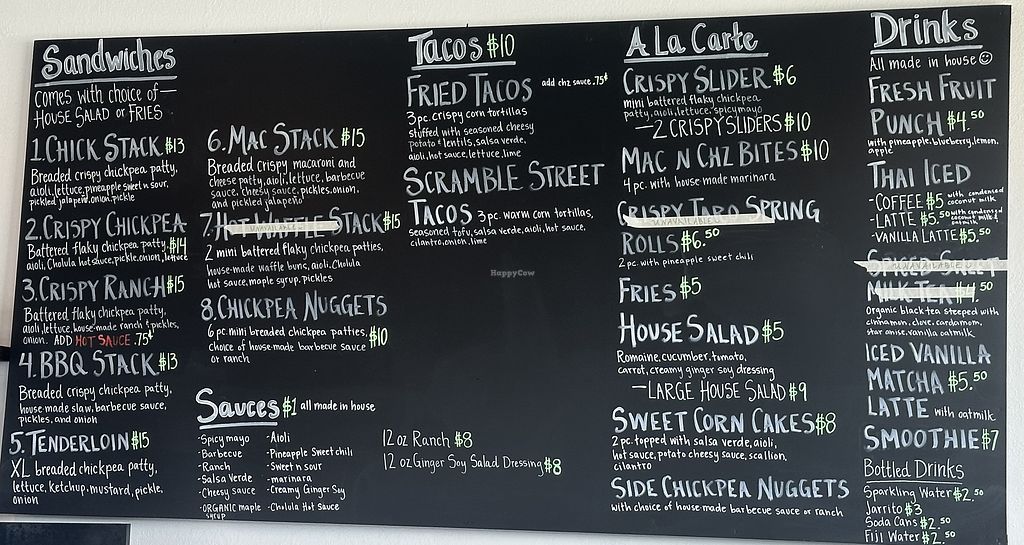 Sandwiches
Comes with choice of —
HOUSE SALAD or FRIES
1. CHICK STACK $13
Breaded crispy chickpea patty,
aioli, lettuce, pineapple sweet n sour,
pickled jalapeño, onion, pickle
2. CRISPY CHICKPEA
Battered flaky chickpea patty, $14
aioli, Cholula hot sauce, pickle, onion, lettuce
3. CRISPY RANCH $15
Battered flaky chickpea patty,
aioli, lettuce, house-made ranch & pickles,
onion. ADD HOT SAUCE .75¢
4. BBQ STACK $13
Breaded crispy chickpea patty,
house-made slaw, barbecue sauce,
pickles, and onion
5. TENDERLOIN $15
XL breaded chickpea patty,
lettuce, ketchup, mustard, pickle,
onion
6. MAC STACK $15
Breaded crispy macaroni and
cheese patty, aioli, lettuce, barbecue
sauce, cheesy sauce, pickles, onion,
and pickled jalapeño
7. HOT WAFFLE STACK $15
UNAVAILABLE
2 mini battered flaky chickpea patties,
house-made waffle buns, aioli, Cholula
hot sauce, maple syrup, pickles
8. CHICKPEA NUGGETS
6 pc. mini breaded chickpea patties, $10
choice of house-made barbecue sauce
or ranch
Sauces $1 all made in house
- Spicy mayo
- Barbecue
- Ranch
- Salsa Verde
- Cheesy sauce
- ORGANIC maple
syrup
- Aioli
- Pineapple Sweet chili
- Sweet n sour
- marinara
- Creamy Ginger Soy
- Cholula Hot Sauce
12 oz Ranch $8
12 oz Ginger Soy Salad Dressing $8
Tacos $10
FRIED TACOS add chz sauce .75¢
3 pc. crispy corn tortillas
stuffed with seasoned cheesy
potato & lentils, salsa verde,
aioli, hot sauce, lettuce, lime
SCRAMBLE STREET
TACOS 3 pc. warm corn tortillas,
seasoned tofu, salsa verde, aioli, hot sauce,
cilantro, onion, lime
A La Carte
CRISPY SLIDER $6
mini battered flaky chickpea
patty, aioli, lettuce, spicy mayo
— 2 CRISPY SLIDERS $10
MAC N CHZ BITES $10
4 pc. with house made marinara
CRISPY TARO SPRING
UNAVAILABLE
ROLLS $6.50
2 pc. with pineapple sweet chili
FRIES $5
HOUSE SALAD $5
Romaine, cucumber, tomato,
carrot, creamy ginger soy dressing
— LARGE HOUSE SALAD $9
SWEET CORN CAKES $8
2 pc. topped with salsa verde, aioli,
hot sauce, potato cheesy sauce, scallion,
cilantro
SIDE CHICKPEA NUGGETS
with choice of house-made barbecue sauce or ranch
Drinks
All made in house ☺
FRESH FRUIT
PUNCH $4.50
with pineapple, blueberry, lemon,
apple
THAI ICED
- COFFEE $5 with condensed coconut milk
- LATTE $5.50 with condensed coconut milk & oatmilk
- VANILLA LATTE $5.50
SPICED SWEET
UNAVAILABLE
MILK TEA $4.50
Organic black tea steeped with
cinnamon, clove, cardamom,
star anise, vanilla oatmilk
ICED VANILLA
MATCHA $5.50
LATTE with oatmilk
SMOOTHIE $7
Bottled Drinks
Sparkling Water $2.50
Jarrito $3
Soda Cans $2.50
Fiji Water $2.50
HappyCow